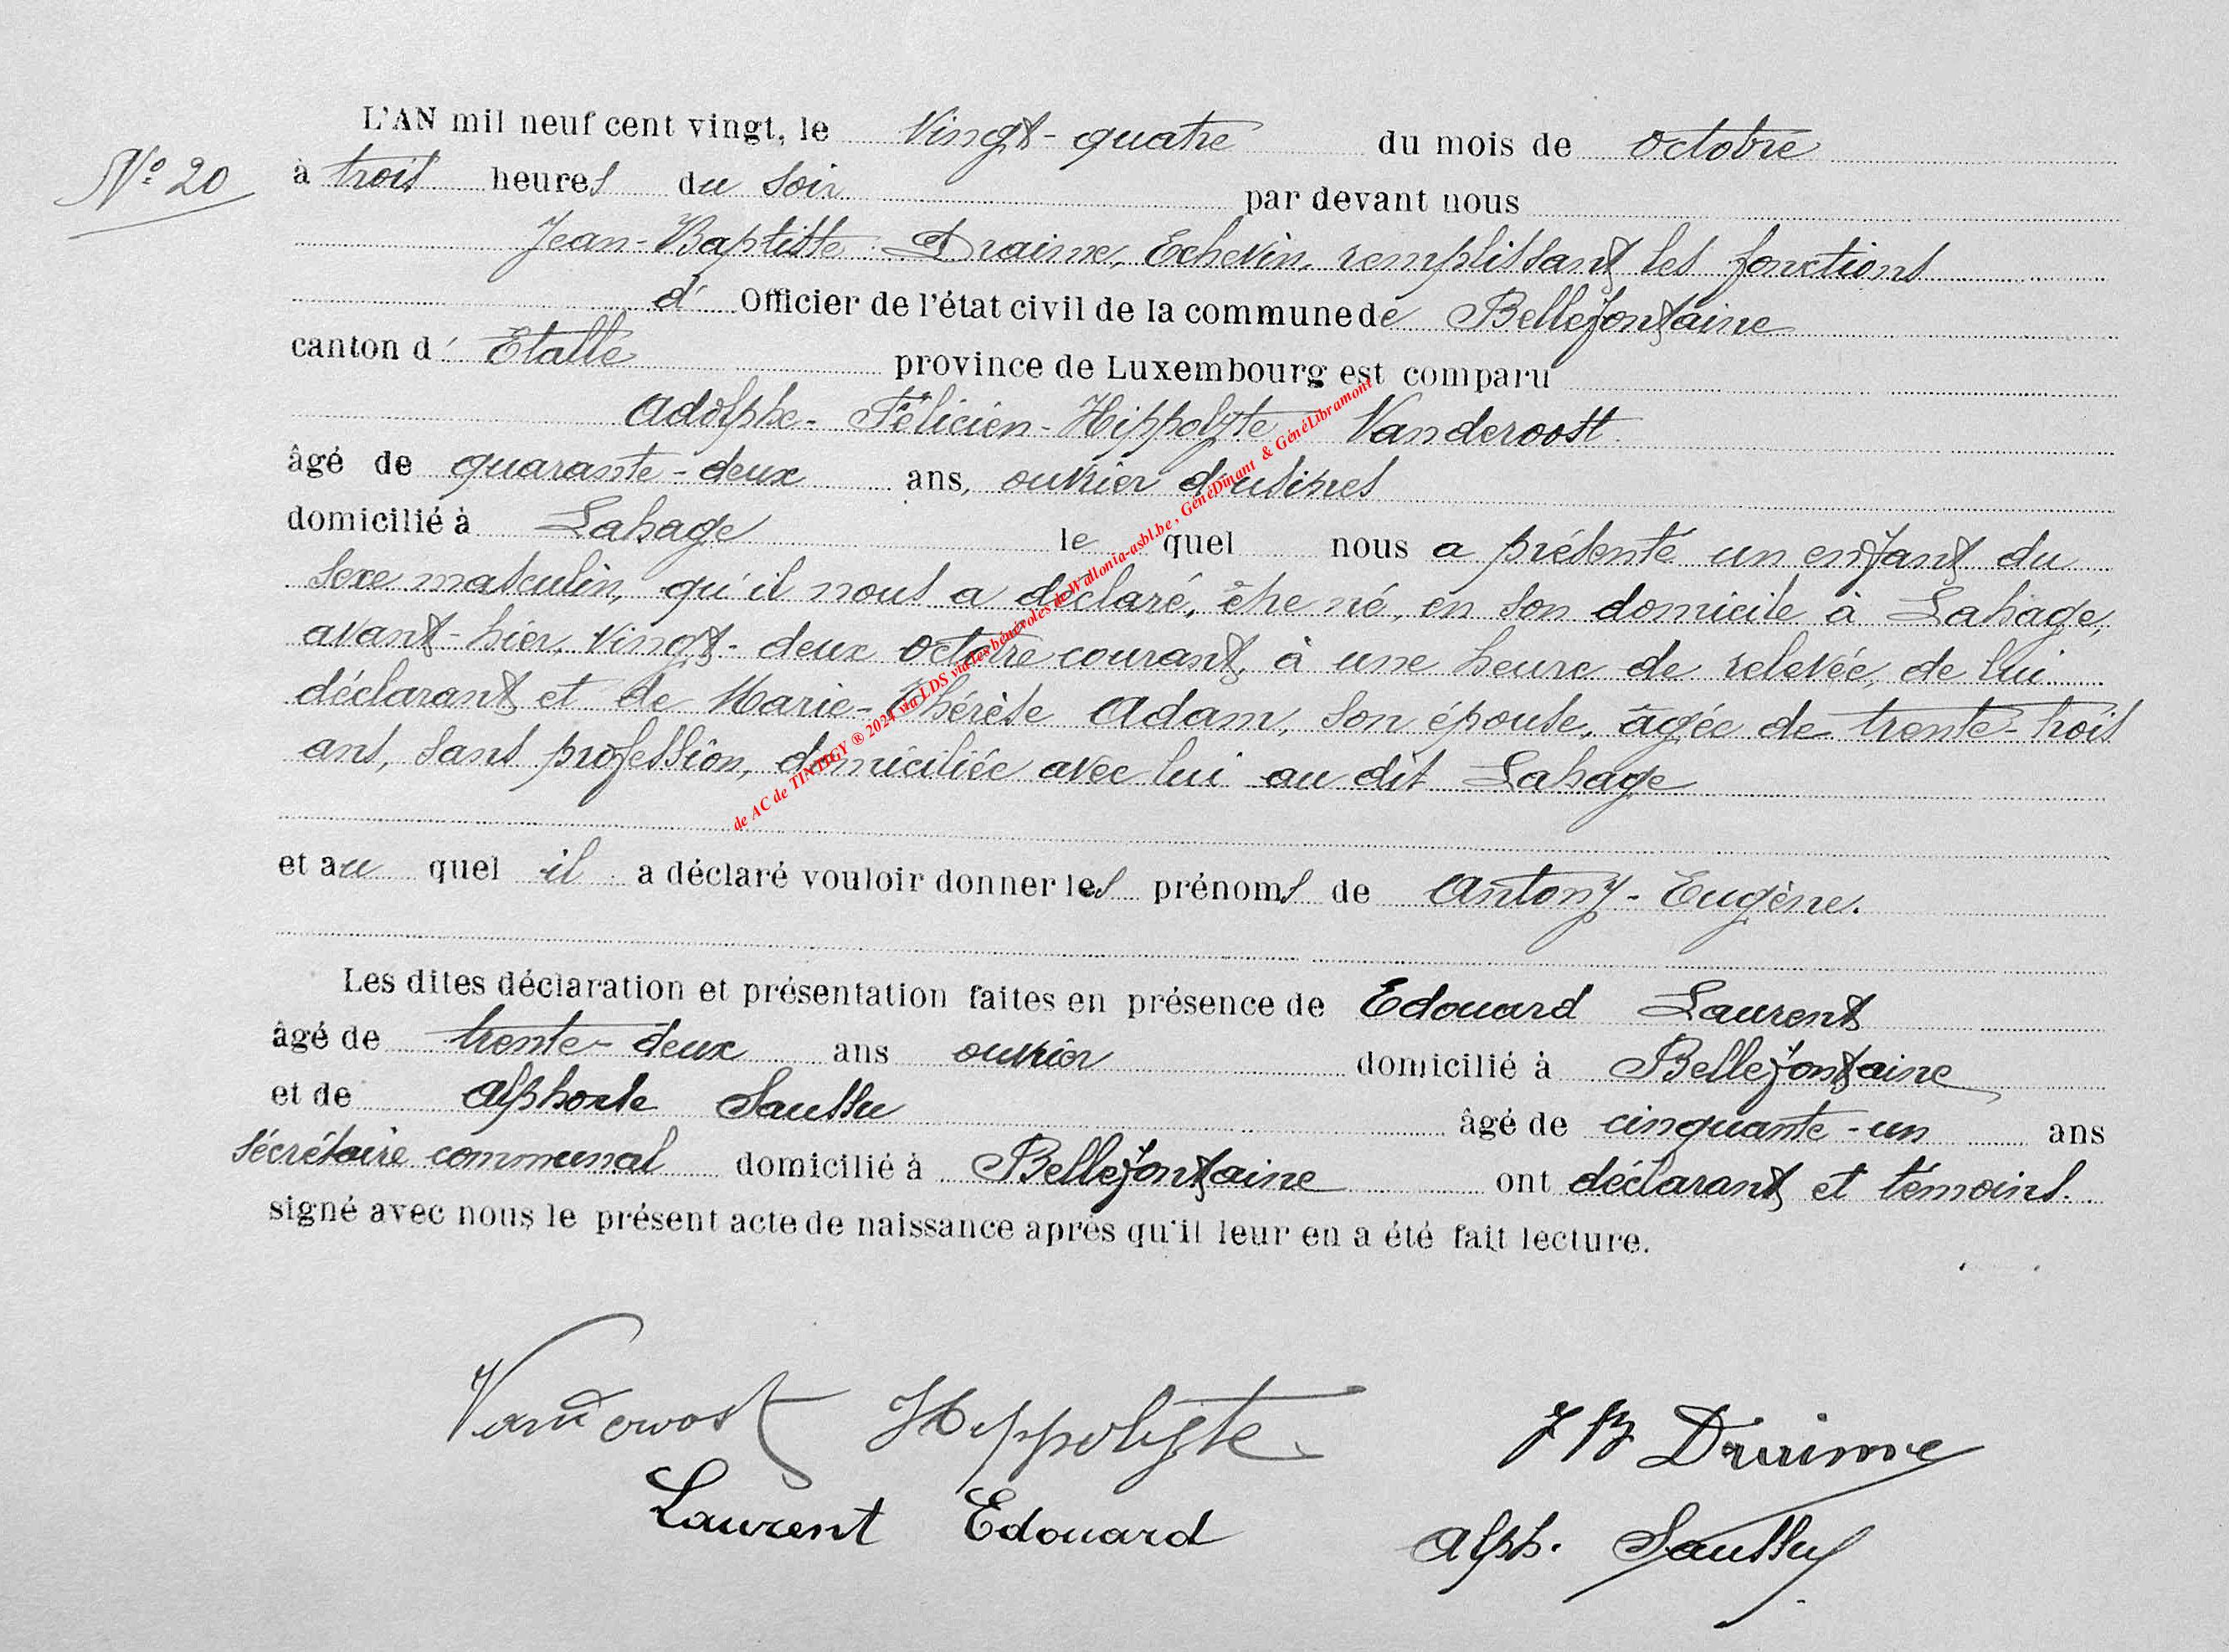 L'AN mil neuf cent vingt, le Vingt-quatre du mois de octobre
N° 20
à trois heures du soir par devant nous
Jean-Baptiste Draime, Echevin, remplissant les fonctions
d' Officier de l'état civil de la commune de Bellefontaine
canton d' Etalle province de Luxembourg est comparu
Adolphe-Félicien-Hippolyte Vanderoost
âgé de quarante-deux ans, ouvrier d'usines
domicilié à Lahage le quel nous a présenté un enfant du
sexe masculin, qu'il nous a déclaré, être né, en son domicile à Lahage,
avant-hier, vingt-deux octobre courant, à une heure de relevée, de lui
déclarant et de Marie-Thérèse Adam, son épouse, âgée de trente-trois
ans, sans profession, domiciliée avec lui au dit Lahage
et au quel il a déclaré vouloir donner les prénoms de Antony-Eugène.
Les dites déclaration et présentation faites en présence de Edouard Laurent
âgé de trente-deux ans ouvrier domicilié à Bellefontaine
et de Alphonse Saussu âgé de cinquante-un ans
sécrétaire communal domicilié à Bellefontaine ont déclarant et témoins.
signé avec nous le présent acte de naissance après qu'il leur en a été fait lecture.
Vanderoost Hippolyte
J B Draime
Laurent Edouard
Alph. Saussu
de AC de TINTIGY ® 2024 via LDS via les bénévoles de Wallonia-asbl.be, GénéDinant & GénéLibramont